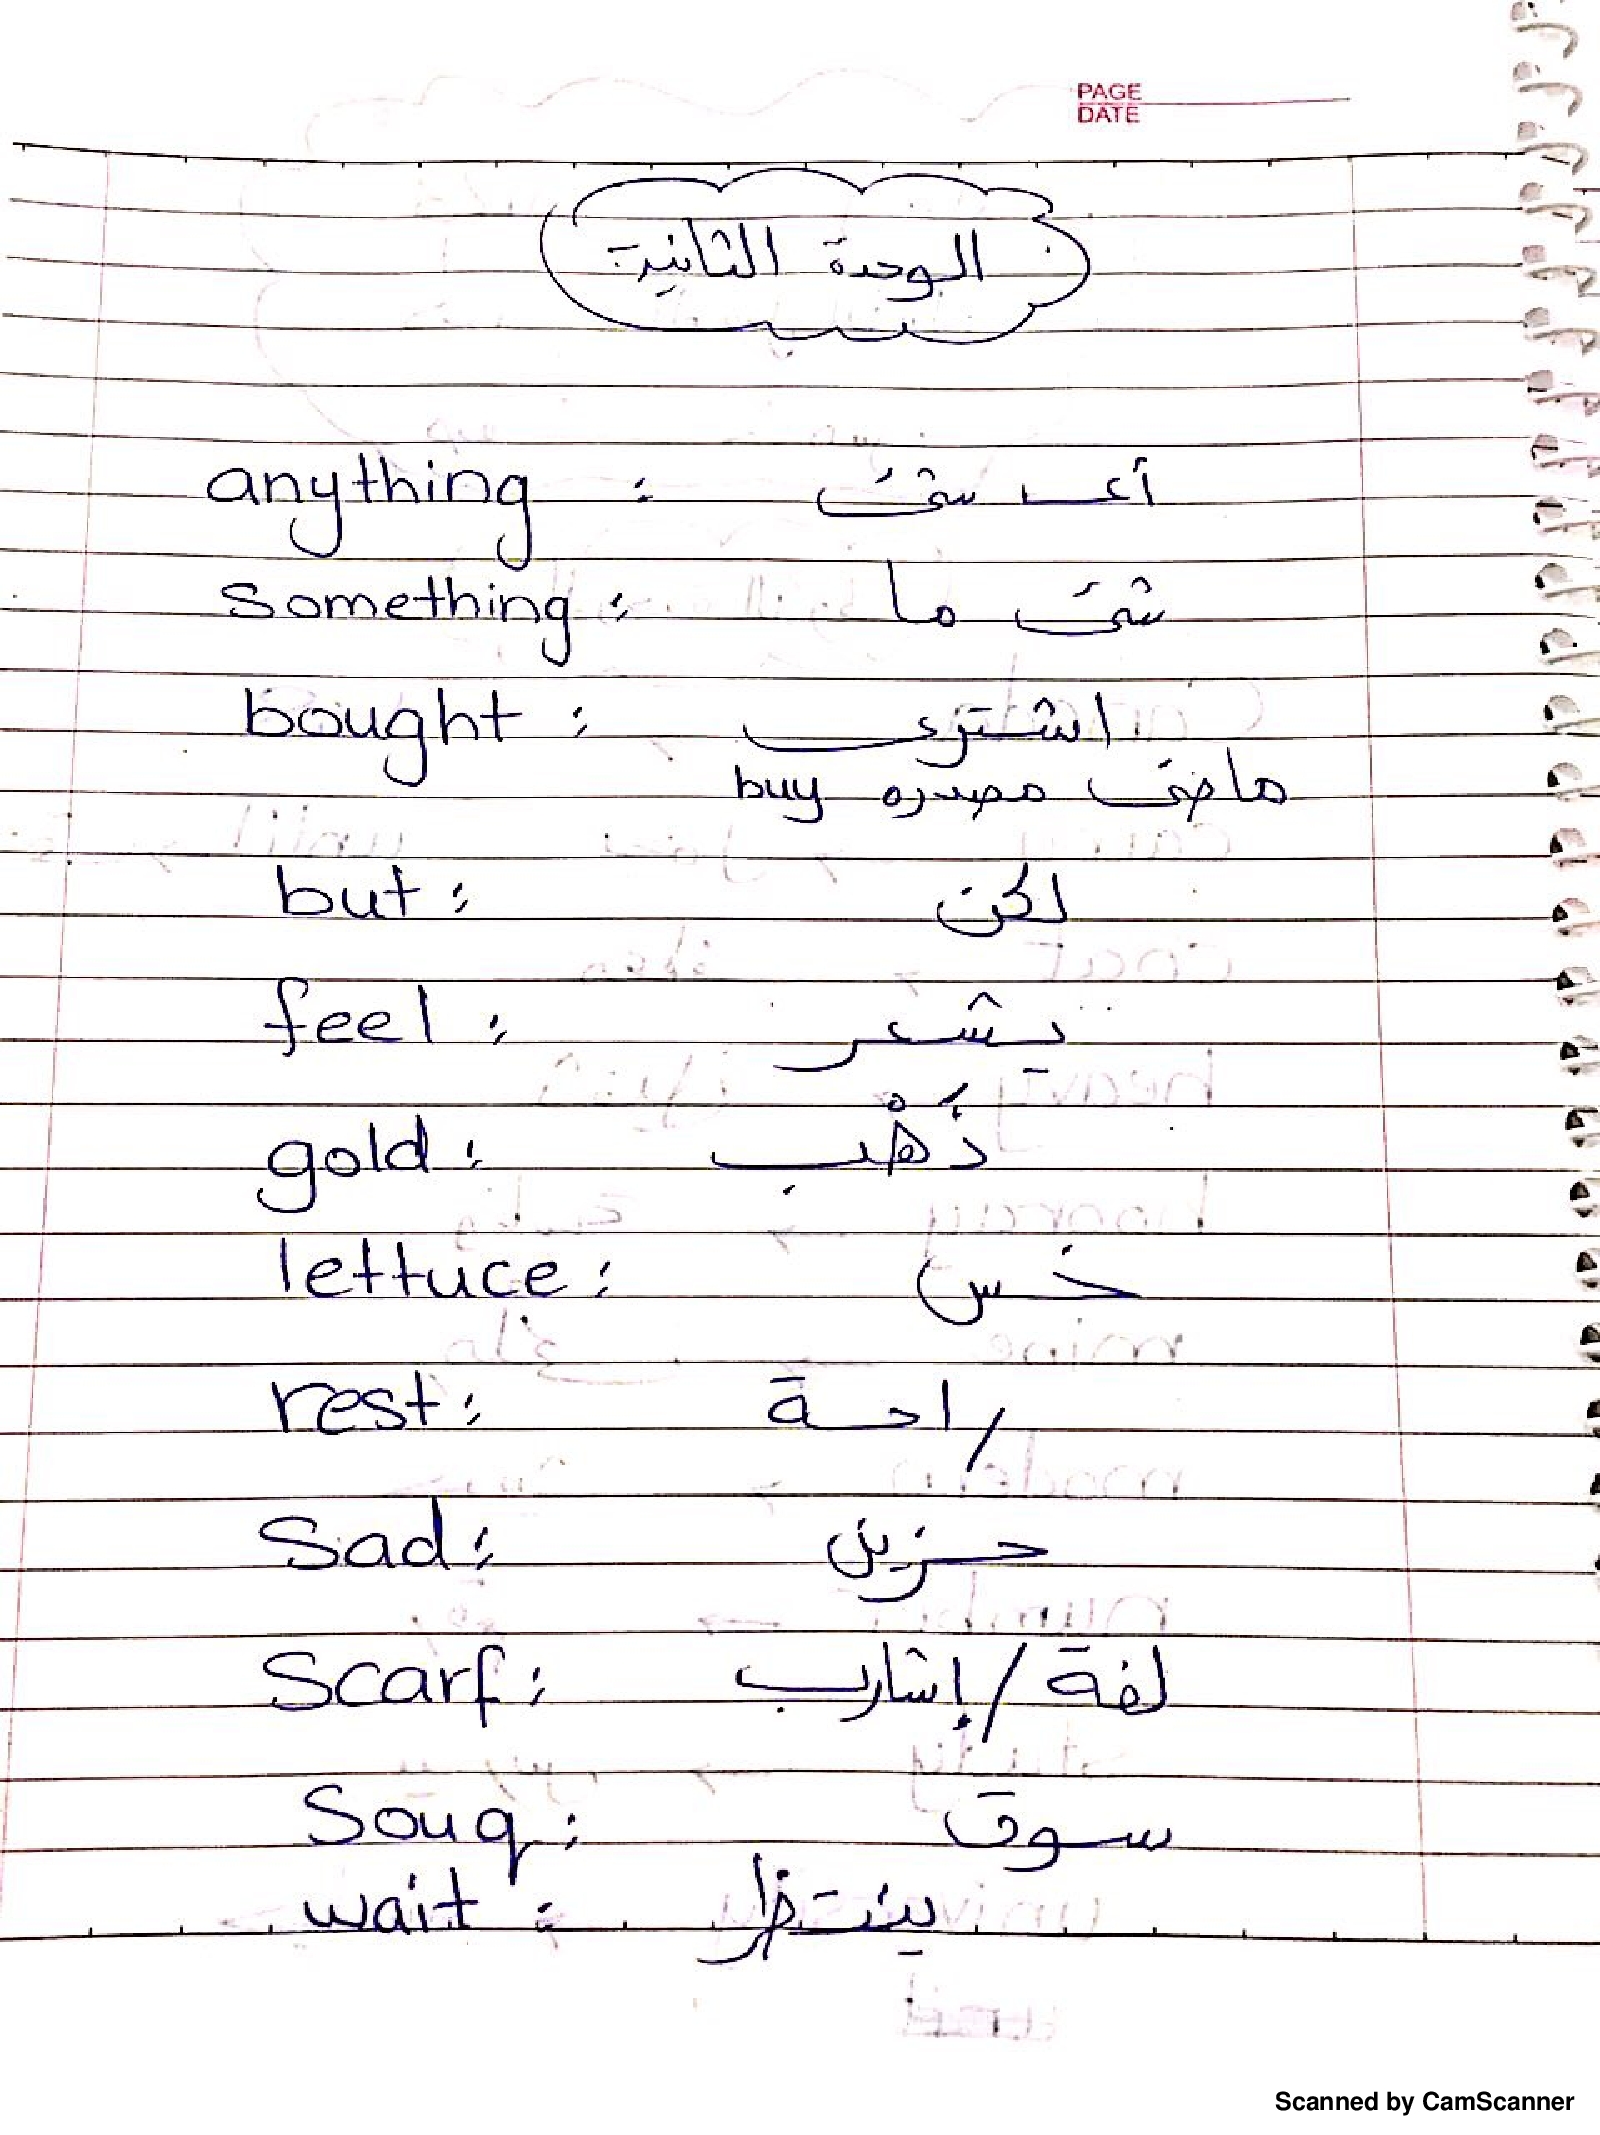 PAGE
DATE
الوحدة الثانية
anything : أى شئ
something : شئ ما
bought : اشترى
ماضى مصدره buy
but : لكن
feel : يشعر
gold : ذَهْب
lettuce : خس
rest : راحة
Sad : حزين
Scarf : لفة / إشارب
Souq : سوق
wait : ينتظر
Scanned by CamScanner